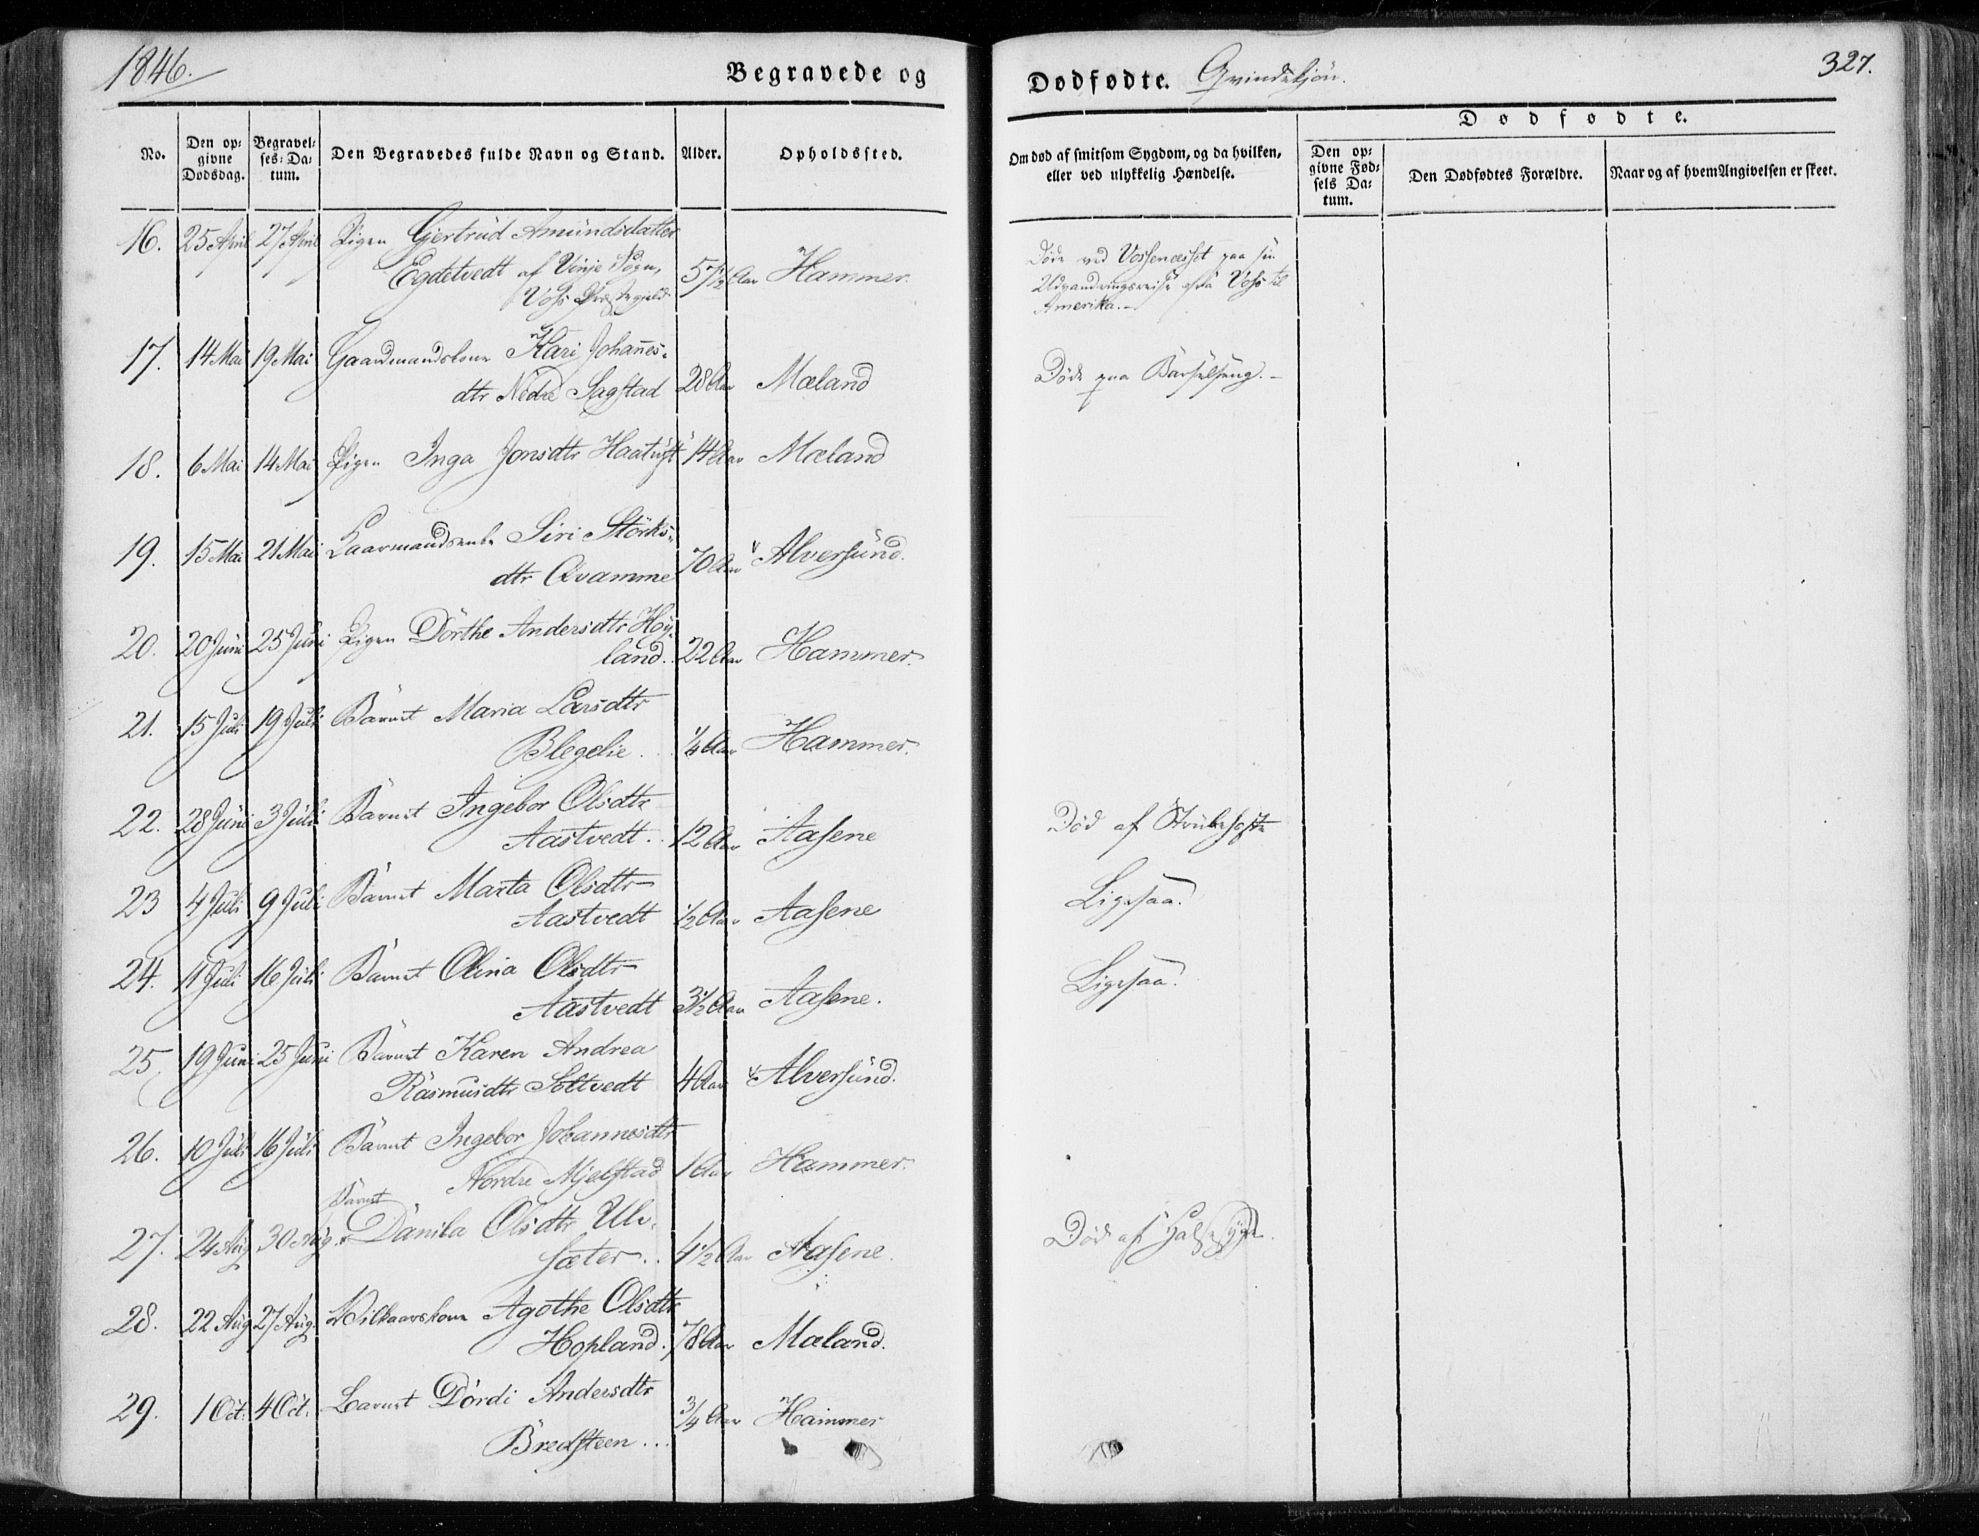 1846.
Begravede og
Dødfødte. Qvindekjön.
327.
No.
Den opgivne Dødsdag.
Begravelses-Datum.
Den Begravedes fulde Navn og Stand.
Alder.
Opholdssted.
Om død af smitsom Sygdom, og da hvilken, eller ved ulykkelig Hændelse.
Dødfødte.
Den opgivne Fødsels Datum.
Den Dødfødtes Forældre.
Naar og af hvem Angivelsen er skeet.
16. 25 April 27 April Pigen Gjertrud Amundsdatter
Egdetvedt af Vinje Sogn,
Vofs Præstegjeld 5 1/2 Aar Hammer.
Döde ved Vossenæsset paa sin
Udvandringsreise fra Vofs til
Amerika.-
17. 14 Mai 19 Mai Gaardmandskone Kari Johannes-
dtr Nedre Sagstad 28 Aar Mæland
Döde paa Barselseng.-
18. 6 Mai 14 Mai Pigen Inga Jonsdtr Haatuft 14 Aar Mæland
19. 15 Mai 21 Mai Siri Störks-
dtr Qvamme 70 Aar Alversund.
20. 20 Juni 25 Juni Pigen Dörthe Andersdtr Höy-
land. 22 Aar Hammer.
21. 15 Juli 19 Juli Barnet Maria Larsdtr
Blegelie. 1/4 Aar Hammer.
22. 28 Juni 3 Juli Barnet Ingebor Olsdtr
Aastvedt. 12 Aar Aasene
Död af Strubehoste
23 4 Juli 9 Juli Barnet Marta Olsdtr
Aastvedt 1/2 Aar Aasene
Ligesaa.
24. 11 Juli 16 Juli Barnet Olina Olsdtr
Aastvedt 3 1/2 Aar Aasene.
Ligesaa.
25, 19 Juni 25 Juni Barnet Karen Andrea
Rasmusdtr Soltvedt 4 Aar Alversund.
26. 10 Juli 16 Juli Barnet Ingebor Johannesdtr
Nordre Mjelstad 1 Aar Hammer.
Barnet
27. 24 Aug 30 Aug. Danila Olsdtr Ulv-
sæter.. 4 1/2 Aar Aasene.
Död af Halssyge.
28. 22 Aug 27 Aug. Vilkaarskone Agothe Olsdtr
Hopland. 78 Aar Mæland.
29. 1 Oct. 4 Oct. Barnet Dördi Andersdtr
Bredsteen... 3/4 Aar Hammer